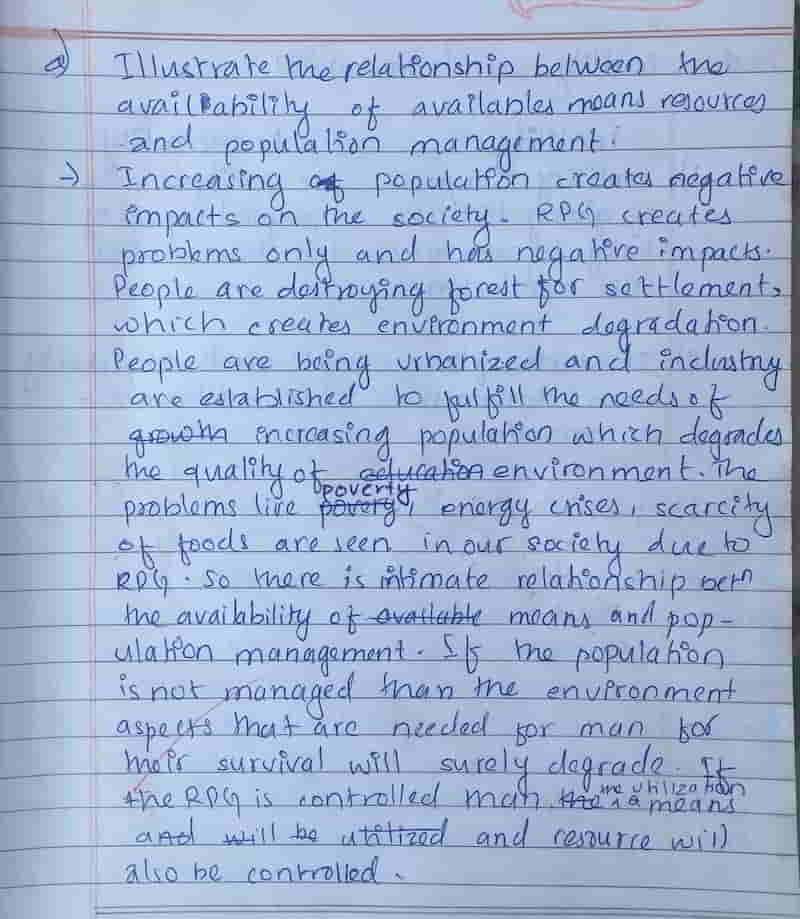 a) Illustrate the relationship between the
availability of availables means resources
and population management.
→ Increasing of population creates negative
impacts on the society. RPG creates
problems only and has negative impacts.
People are destroying forest for settlement,
which creates environment degradation.
People are being urbanized and industry
are established to fulfill the needs of
growth increasing population which degrades
the quality of education environment. The
problems like poverty poverty, energy crises, scarcity
of foods are seen in our society due to
RPG. So there is intimate relationship betn
the availability of available means and pop-
ulation management. If the population
is not managed than the environment
aspects that are needed for man for
their survival will surely degrade. If
the RPG is controlled than the the utilization means
and will be utilized and resource will
also be controlled.